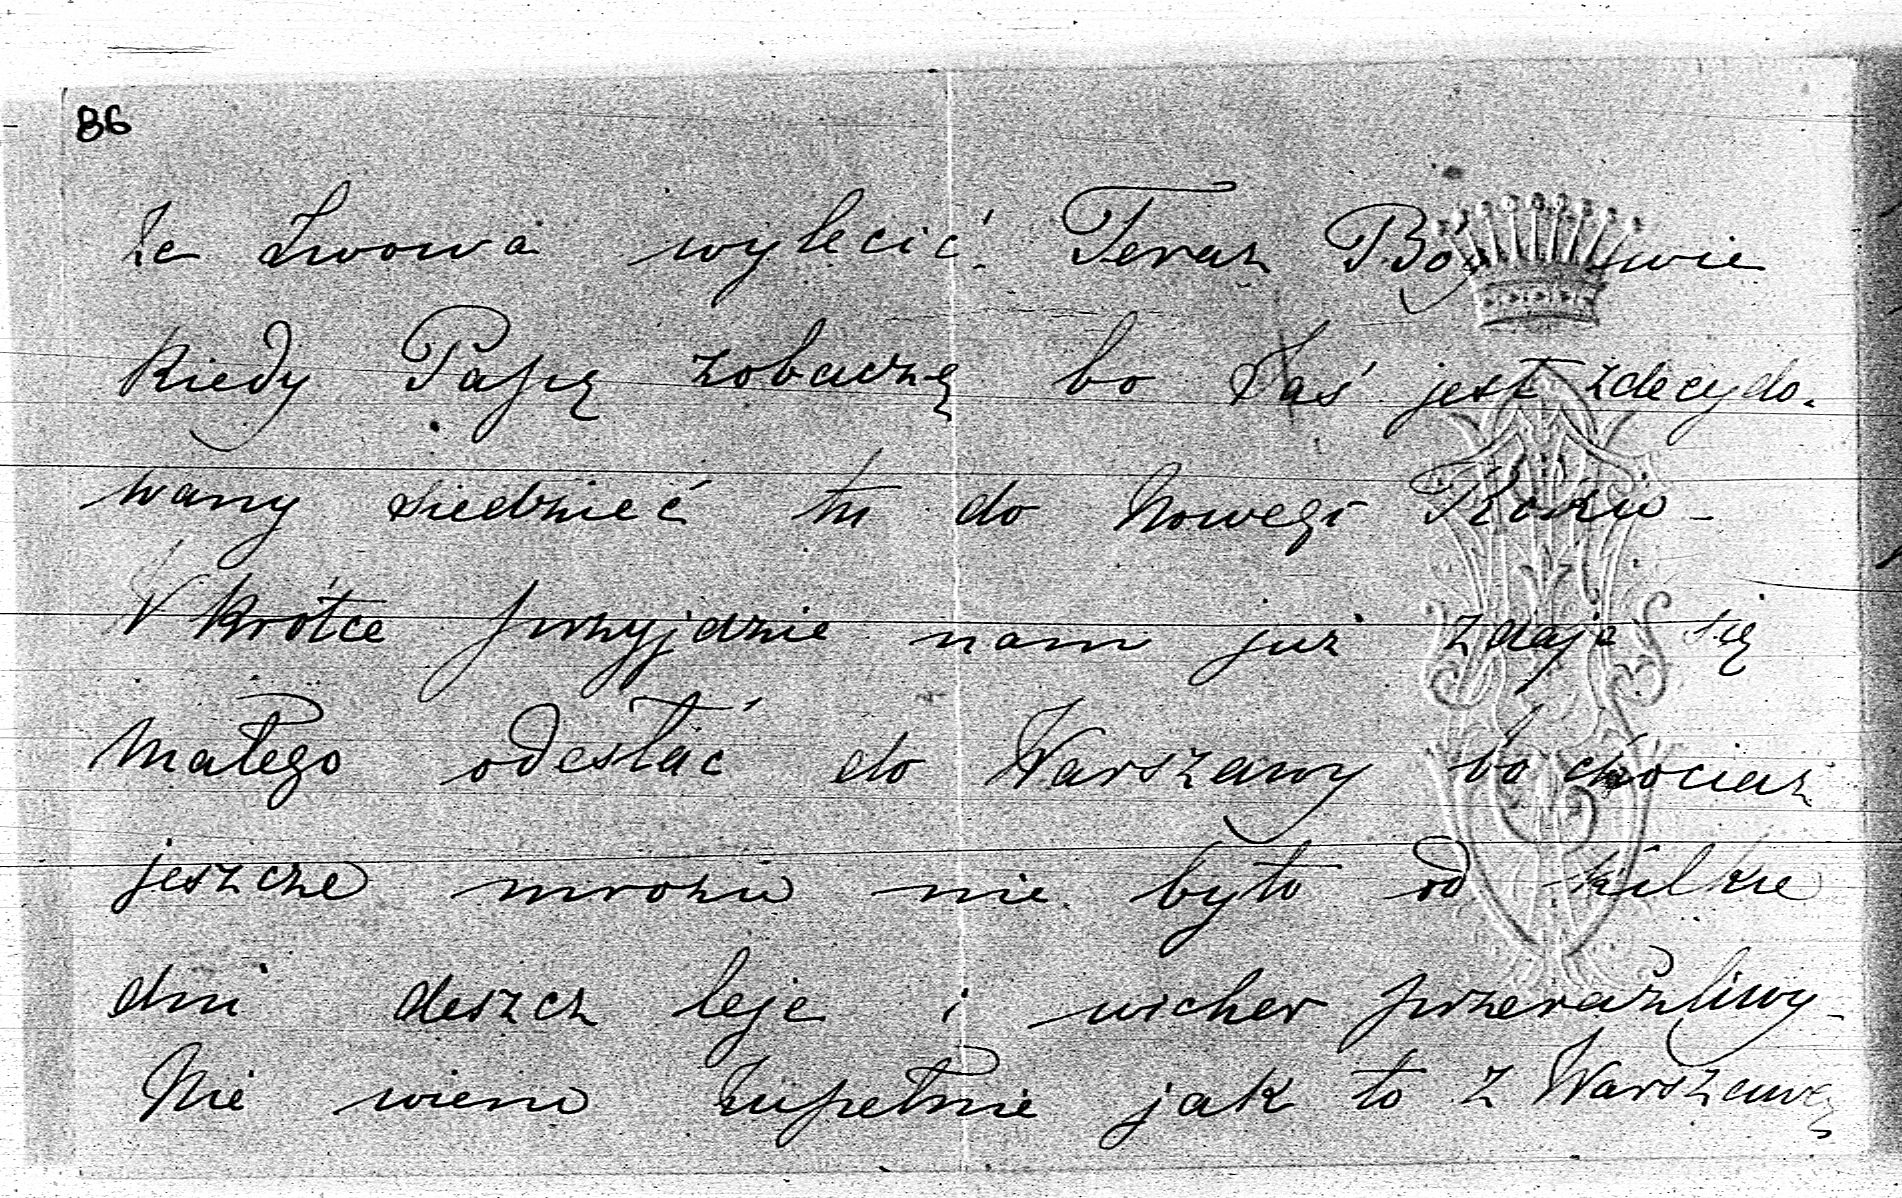 86
Ze Lwowa wylecić. Teraz Bóg wie
kiedy Papę zobaczę bo Jaś jest zdecydo-
wany siedzieć tu do Nowego Roku -
Wkrótce przyjdzie nam już zdaje się
małego odesłać do Warszawy bo chociaz
jeszcze mrozu nie było od kilku
dni deszcz leje i wicher przeraźliwy -
Nie wiem zupełnie jak to z Warszawą